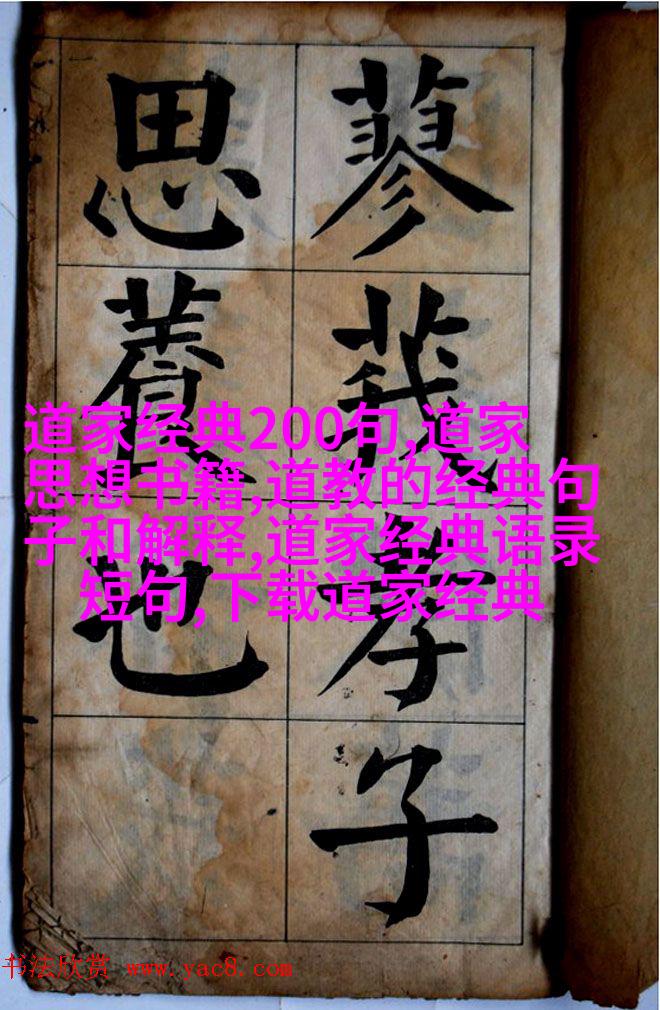 蓼莪孝子
思養也
道家经典200句,道家
思想书籍,道教的经典句
子和解释,道家经典语录
短句,下载道家经典
书法欣赏 www.yac8.com